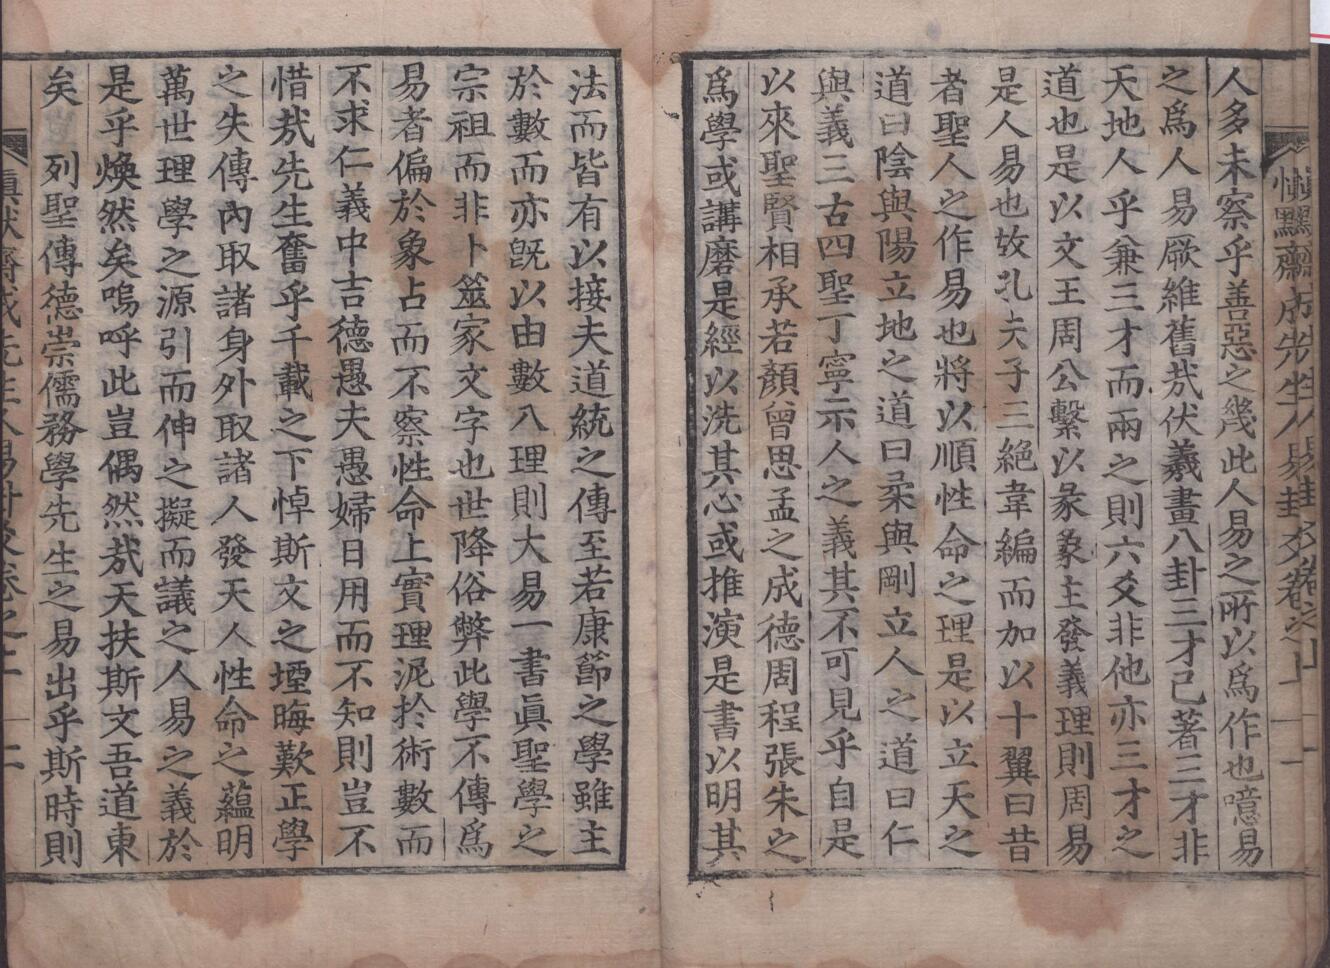 愼默齋成先生人易卦爻卷之上
人多未察乎善惡之幾此人易之所以爲作也噫易
之爲人易厥維舊㢤伏羲畫八卦三才已著三才非
天地人乎兼三才而兩之則六爻非他亦三才之
道也是以文王周公繫以彖象主發義理則周易
是人易也故孔夫子三絶韋編而加以十翼曰昔
者聖人之作易也將以順性命之理是以立天之
道曰陰與陽立地之道曰柔與剛立人之道曰仁
與義三古四聖丁寧示人之義其不可見乎自是
以來聖賢相承若顔曾思孟之成德周程張朱之
爲學或講磨是經以洗其心或推演是書以明其
法而皆有以接夫道統之傳至若康節之學雖主
於數而亦旣以由數八理則大易一書眞聖學之
宗祖而非卜筮家文字也世降俗弊此學不傳爲
易者偏於象占而不察性命上實理泥於術數而
不求仁義中吉德愚夫愚婦日用而不知則豈不
惜㢤先生奮乎千載之下悼斯文之堙晦歎正學
之失傳內取諸身外取諸人發天人性命之蘊明
萬世理學之源引而伸之擬而議之人易之義於
是乎煥然矣嗚呼此豈偶然㢤天扶斯文吾道東
矣 列聖傳德崇儒務學先生之易出乎斯時則